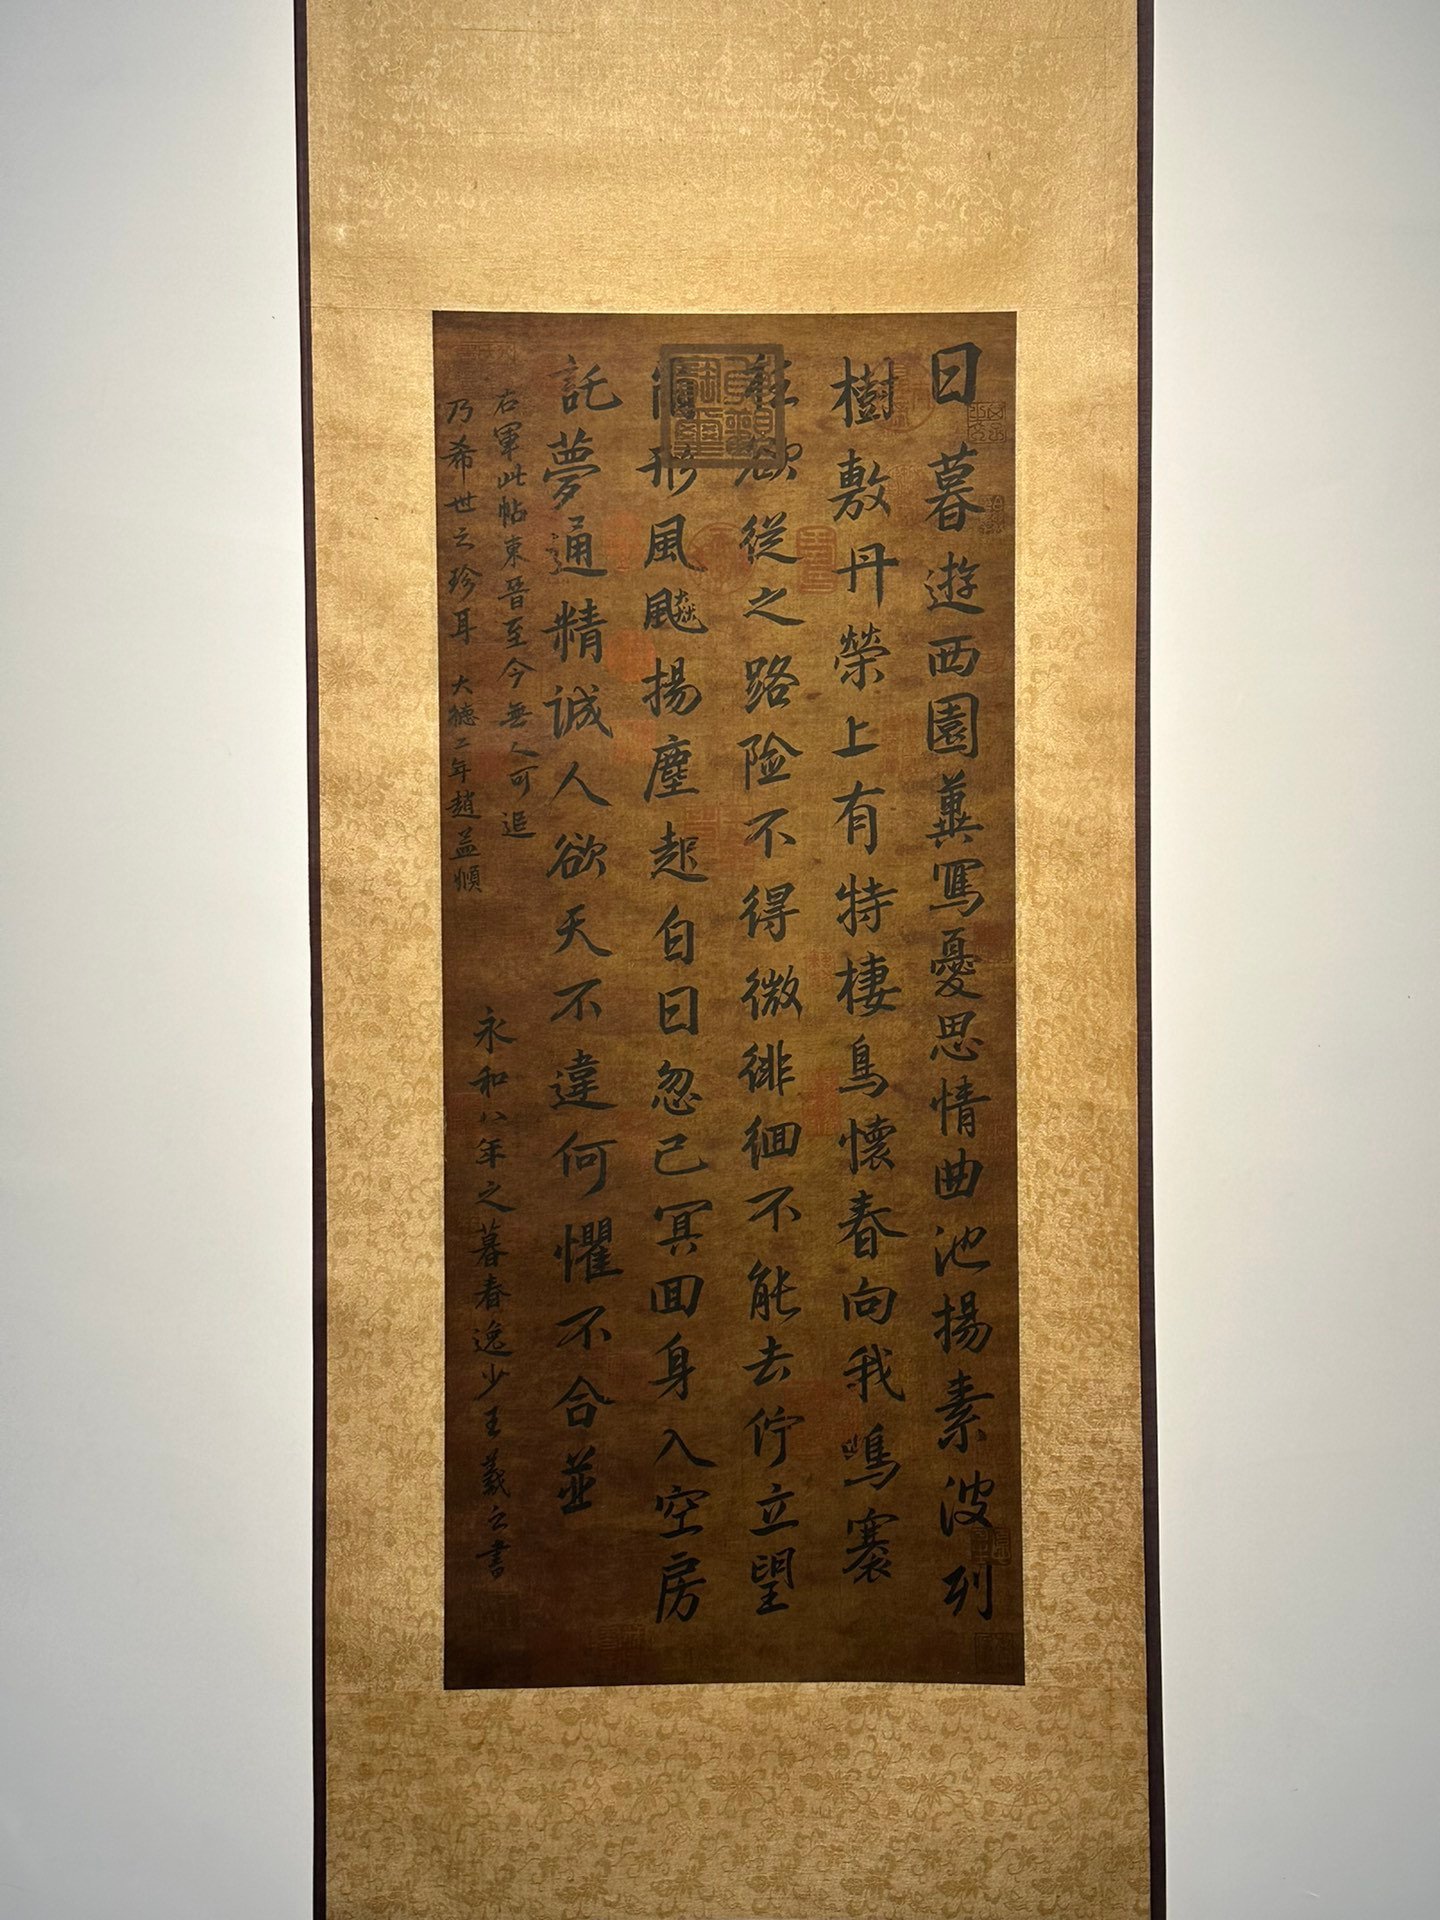 日暮遊西園冀寫憂思情曲池揚素波列
樹敷丹榮上有特棲鳥懷春向我鳴褰
衽欲從之路险不得微徘徊不能去佇立望
爾形風飈揚塵起白日忽已冥囬身入空房
託夢通精诚人欲天不違何懼不合並
右軍此帖東晉至今無人可追
乃希世之珍耳 大德二年趙孟頫
永和八年之暮春逸少王羲之書